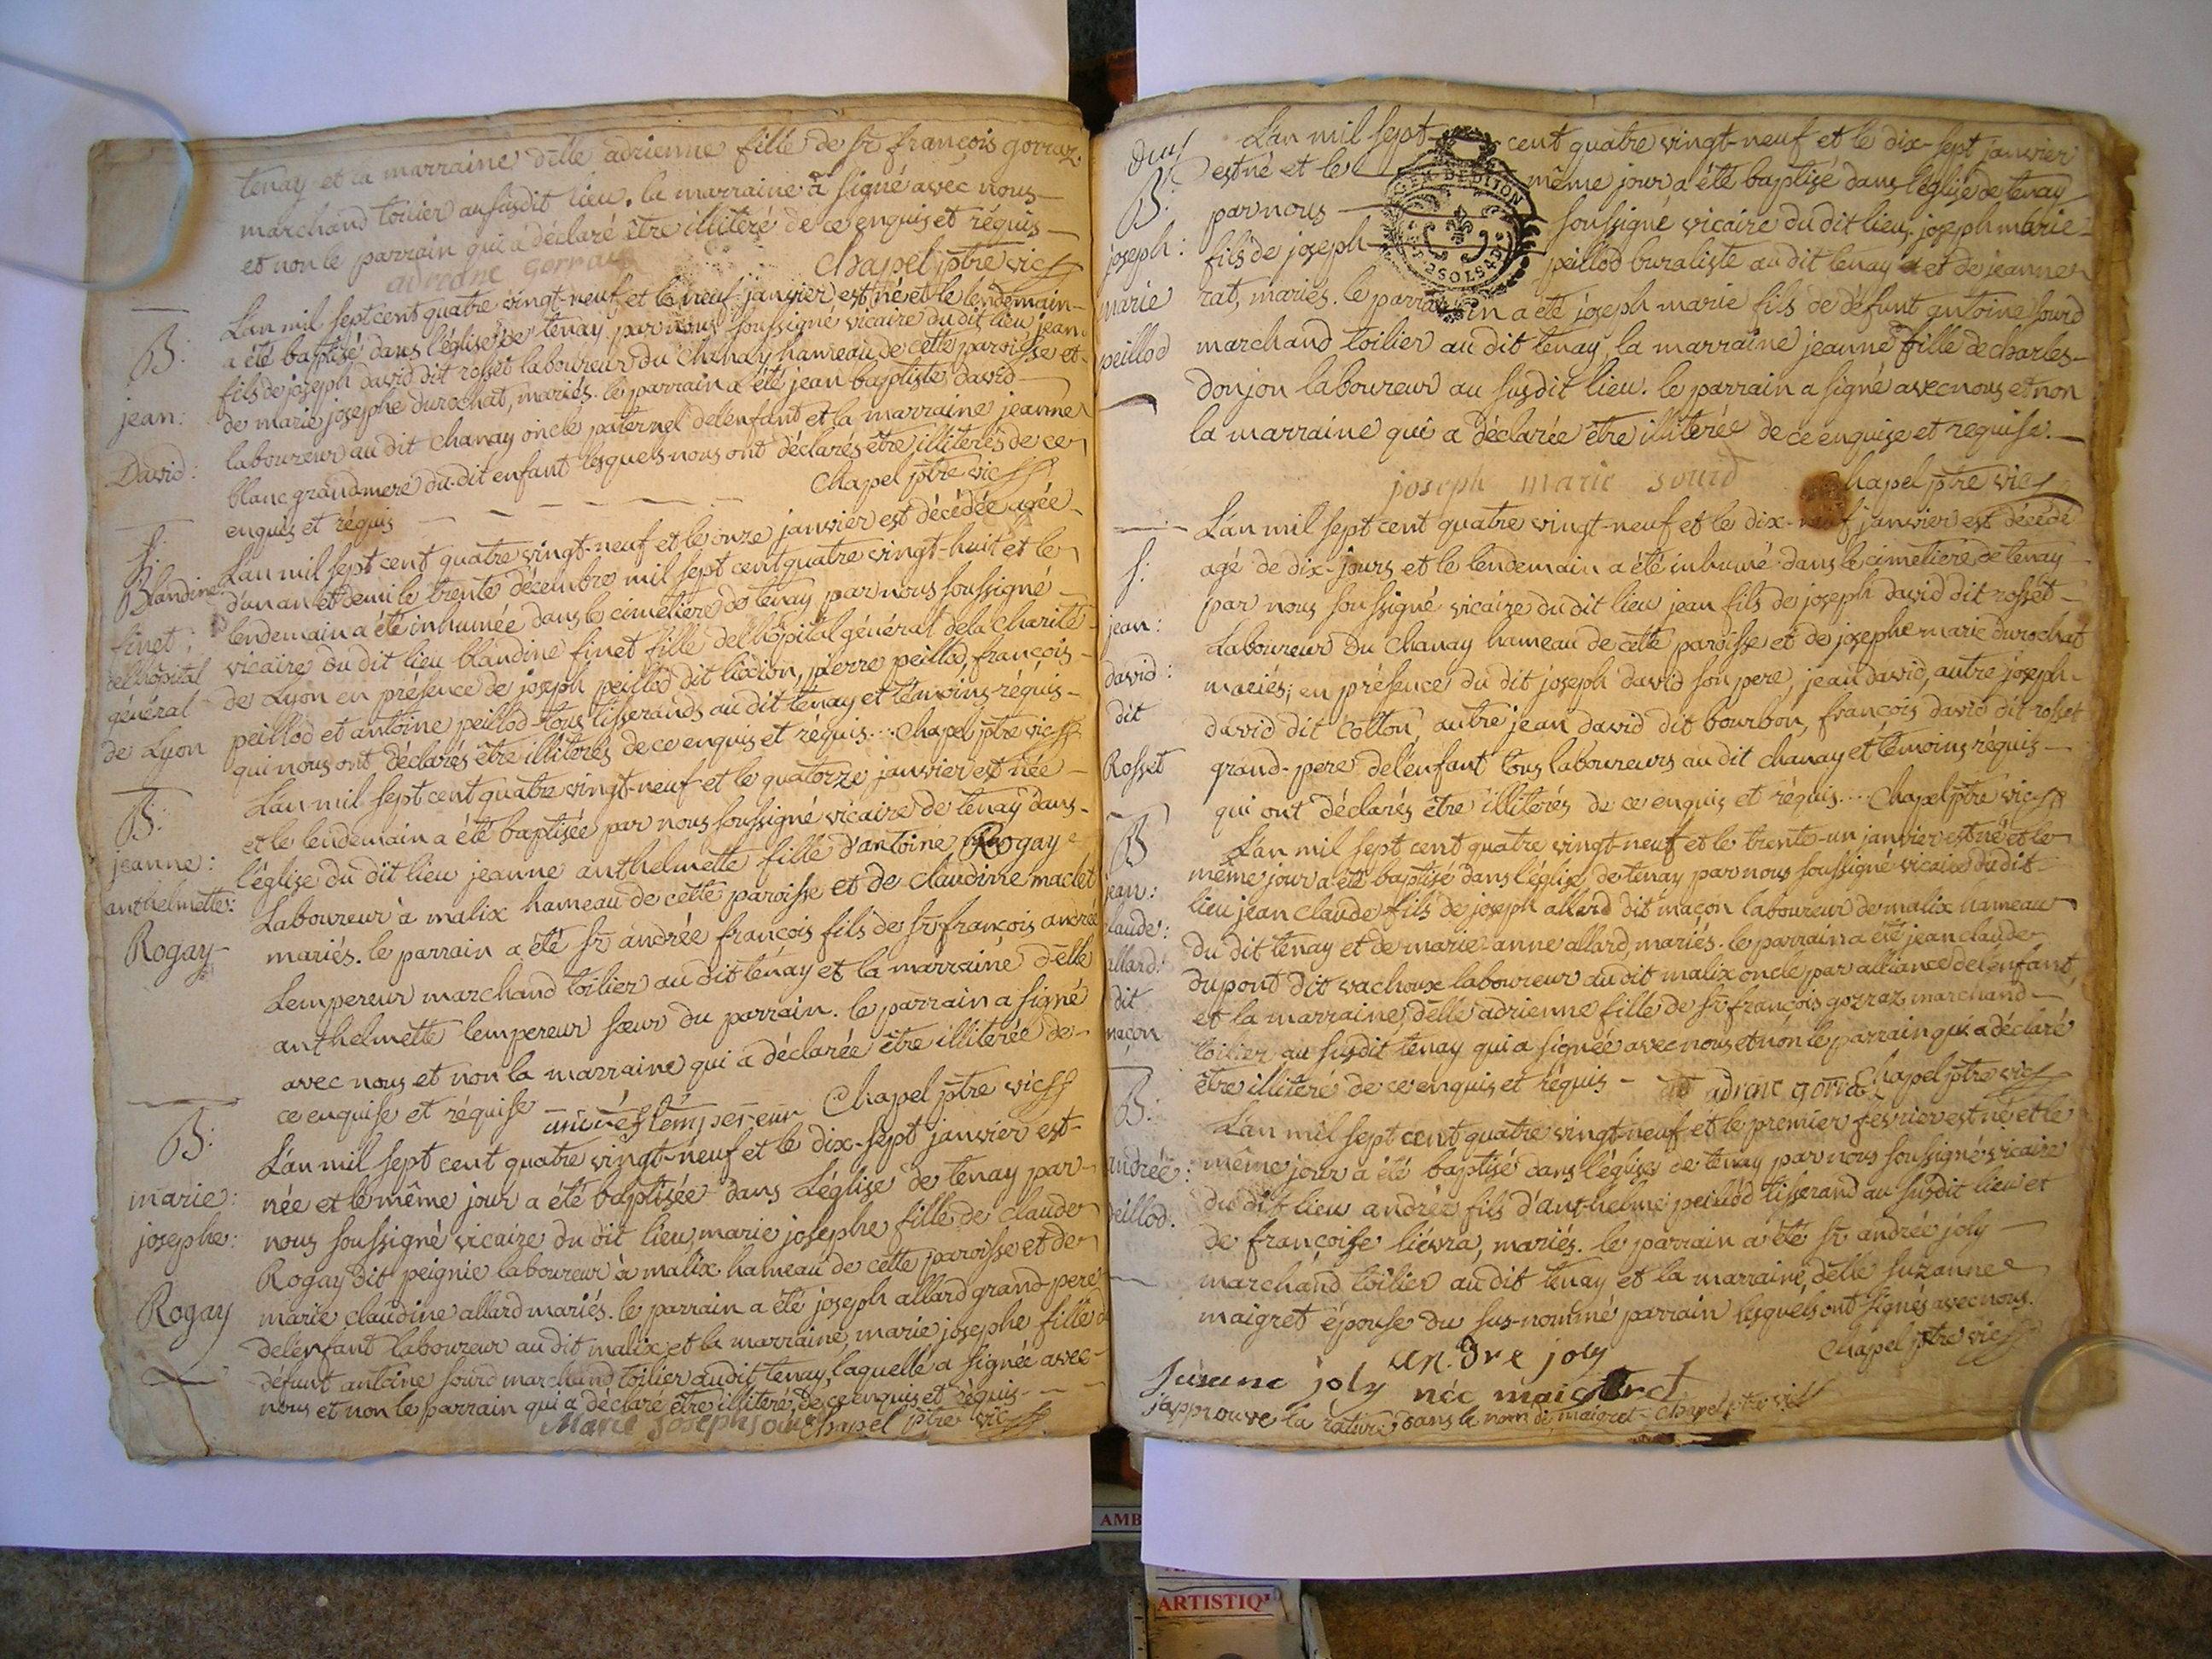 tenay et la marraine delle adrienne fille de sr françois gorraz
marchand toilier au susdit lieu. la marraine a signé avec nous
et non le parrain qui a déclaré être illiteré de ce enquis et réquis
adriane gorra Chapel ptre vic
B:
jean:
David:
L'an mil sept cent quatre vingt-neuf et le neuf janvier est né et le lendemain
a été baptisé dans l'église de tenay par nous soussigné vicaire du dit lieu, jean
fils de joseph david dit rosset laboureur du Chanay hameau de cette paroisse et
de marie josephe durochat, mariés. le parrain a été jean baptiste david
laboureur au dit chanay oncle paternel de l'enfant et la marraine jeanne
blanc grand mere du dit enfant lesquels nous ont déclarés être illiterés de ce
enquis et réquis Chapel ptre vic
S:
Blandine
finet:
de l'hôpital
général
de Lyon
L'an mil sept cent quatre vingt-neuf et le onze janvier est décédée agée
d'un an et demi le trente décembre mil sept cent quatre vingt-huit et le
lendemain a été inhumée dans le cimetiere de tenay par nous soussigné
vicaire du dit lieu blandine finet fille de l'hôpital général de la Charité
de Lyon en présence de joseph peillod dit liodion, pierre peillod, françois
peillod et antoine peillod tous tisserands au dit tenay et témoins réquis
qui nous ont déclarés être illiterés de ce enquis et réquis... Chapel ptre vic
B:
jeanne:
anthelmette:
Rogay
L'an mil sept cent quatre vingt-neuf et le quatorze janvier est née
et le lendemain a été baptisée par nous soussigné vicaire de tenay dans
l'église du dit lieu jeanne anthelmette fille d'antoine Rogay
Laboureur à malix hameau de cette paroisse et de claudine maclet
mariés. le parrain a été sr andrée françois fils de sr françois andrée
Lempereur marchand toilier au dit tenay et la marraine delle
anthelmette lempereur sœur du parrain. le parrain a signé
avec nous et non la marraine qui a déclarée être illiterée de
ce enquise et réquise lempereur Chapel ptre vic
B:
marie:
josephe:
Rogay
L'an mil sept cent quatre vingt-neuf et le dix-sept janvier est
née et le même jour a été baptisée dans L'église de tenay par
nous soussigné vicaire du dit lieu, marie josephe fille de claude
Rogay dit peignie laboureur à malix hameau de cette paroisse et de
marie claudine allard mariés. le parrain a été joseph allard grand-pere
de l'enfant laboureur au dit malix et la marraine marie josephe fille de
défunt antoine sourd marchand toilier au dit tenay, laquelle a signée avec
nous et non le parrain qui a déclaré être illiteré, de ce enquis et réquis
Marie Joseph sourd Chapel ptre vic
B:
joseph:
marie
peillod
L'an mil sept cent quatre vingt-neuf et le dix-sept janvier
est né et le même jour a été baptisé dans l'église de tenay
par nous soussigné vicaire du dit lieu, joseph marie
fils de joseph peillod buraliste au dit tenay et de jeanne
rat, mariés. le parrain a été joseph marie fils de défunt antoine sourd
marchand toilier au dit tenay, la marraine jeanne fille de charles
donjon laboureur au susdit lieu. le parrain a signé avec nous et non
la marraine qui a déclarée être illiterée de ce enquise et requise.
GEN. DE DIJON
joseph marie sourd Chapel ptre vic
S:
jean:
david:
dit
Rosset
L'an mil sept cent quatre vingt-neuf et le dix-neuf janvier est décédé
agé de dix-jours et le lendemain a été inhumé dans le cimetiere de tenay
par nous soussigné vicaire du dit lieu jean fils de joseph david dit rosset
Laboureur du Chanay hameau de cette paroisse et de josephe marie durochat
mariés; en présence du dit joseph david son pere, jean david, autre joseph
david dit Cotton, autre jean david dit bourbon, françois david dit rosset
grand-pere de l'enfant tous laboureurs au dit chanay et témoins réquis
qui ont déclarés être illiterés de ce enquis et réquis.... Chapel ptre vic
B
jean:
laude:
allard:
dit
maçon
L'an mil sept cent quatre vingt-neuf et le trente-un janvier est né et le
même jour a été baptisé dans l'église, de tenay par nous soussigné vicaire du dit
lieu jean claude fils de joseph allard dit maçon laboureur de malix hameau
du dit tenay et de marie anne allard, mariés. le parrain a été jean claude
dupont dit vachoux laboureur au dit malix oncle par alliance de l'enfant,
et la marraine, delle adrienne fille de sr françois gorraz marchand
toilier au susdit tenay qui a signée avec nous et non le parrain qui a déclaré
être illiteré de ce enquis et réquis adriane gorra Chapel ptre vic
B:
andrée:
peillod.
L'an mil sept cent quatre vingt-neuf et le premier fevrier est né et le
même jour a été baptisé dans l'église de tenay par nous soussigné vicaire
du dit lieu andrée fils d'anthelme peillod tisserand au susdit lieu et
de françoise liévra, mariés. le parrain a été sr andrée joly
marchand toilier au dit tenay et la marraine, delle suzanne
maigret épouse du sus-nommé parrain lesquels ont signés avec nous.
Chapel ptre vic
andre joly
Susanne joly née maigret
j'approuve la rature dans le nom de maigret - Chapel ptre vic
AMB
ARTISTIQ